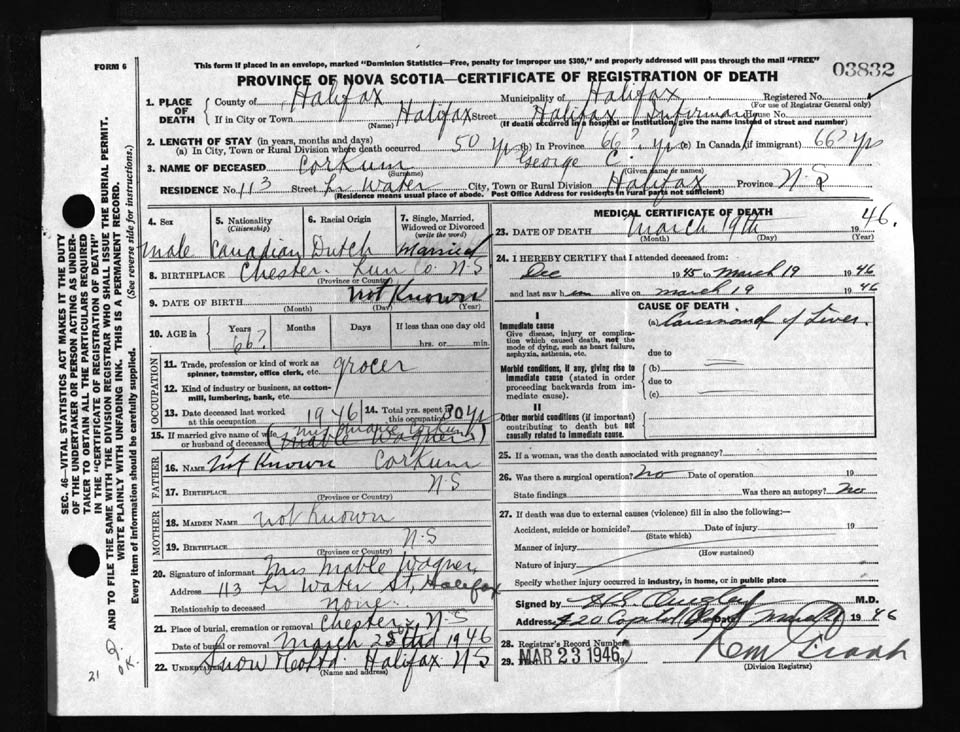 FORM 6
This form if placed in an envelope, marked "Dominion Statistics—Free, penalty for improper use $300," and properly addressed will pass through the mail "FREE"
PROVINCE OF NOVA SCOTIA—CERTIFICATE OF REGISTRATION OF DEATH
03832
1. PLACE OF DEATH
County of Halifax Municipality of Halifax Registered No.
(For use of Registrar General only)
If in City or Town Halifax Street Halifax Infirmary House No.
(Name) (If death occurred in a hospital or institution, give the name instead of street and number)
2. LENGTH OF STAY (in years, months and days)
(a) In City, Town or Rural Division where death occurred 50 yrs (b) In Province 66? yrs (c) In Canada (if immigrant) 66? yrs
3. NAME OF DECEASED Corkum George C.
(Surname) (Given name or names)
RESIDENCE No. 113 Street Lr Water City, Town or Rural Division Halifax Province N.S
(Residence means usual place of abode. Post Office Address for residents in rural parts not sufficient)
4. Sex
male
5. Nationality
(Citizenship)
Canadian
6. Racial Origin
Dutch
7. Single, Married, Widowed or Divorced
(write the word)
Married
8. BIRTHPLACE Chester. Lun Co. N-S
(Province or Country)
9. DATE OF BIRTH not Known
(Month) (Day) (Year)
10. AGE in
Years Months Days If less than one day
66? hrs. or min.
OCCUPATION
11. Trade, profession or kind of work as spinner, teamster, office clerk, etc. grocer
12. Kind of industry or business, as cotton-mill, lumbering, bank, etc.
13. Date deceased last worked at this occupation 1946
14. Total yrs. spent in this occupation 30 yr
15. If married give name of wife or husband of deceased
Corkum
Mable Wagner
FATHER
16. NAME Not Known Corkum
17. BIRTHPLACE N-S
(Province or Country)
MOTHER
18. MAIDEN NAME not Known
19. BIRTHPLACE N-S
(Province or Country)
20. Signature of informant Mrs Mable Wagner,
Address 113 Lr Water St, Halifax
Relationship to deceased none.
21. Place of burial, cremation or removal Chester, N-S
Date of burial or removal March 1946
22. UNDERTAKER Snow Halifax N-S
(Name and address)
MEDICAL CERTIFICATE OF DEATH
23. DATE OF DEATH March 19th 1946.
(Month) (Day) (Year)
24. I HEREBY CERTIFY that I attended deceased from:
Dec 1945 to March 19 1946
and last saw him alive on march 19 1946
CAUSE OF DEATH
I
Immediate cause
Give disease, injury or complication which caused death, not the mode of dying, such as heart failure, asphyxia, asthenia, etc.
(a) of Liver.
due to
Morbid conditions, if any, giving rise to immediate cause (stated in order proceeding backwards from immediate cause).
(b)
due to
(c)
II
Other morbid conditions (if important) contributing to death but not causally related to immediate cause.
25. If a woman, was the death associated with pregnancy?
26. Was there a surgical operation? no Date of operation 19
State findings Was there an autopsy? no
27. If death was due to external causes (violence) fill in also the following:—
Accident, suicide or homicide? Date of injury 19
(State which)
Manner of injury
(How sustained)
Nature of injury
Specify whether injury occurred in industry, in home, or in public place
Signed by M.D.
Address Date 1946
28. Registrar's Record Number
29. MAR 23 1946
(Division Registrar)
SEC. 46—VITAL STATISTICS ACT MAKES IT THE DUTY
OF THE UNDERTAKER OR PERSON ACTING AS UNDER-
TAKER TO OBTAIN ALL THE PARTICULARS REQUIRED
IN THE "CERTIFICATE OF REGISTRATION OF DEATH"
AND TO FILE THE SAME WITH THE DIVISION REGISTRAR WHO SHALL ISSUE THE BURIAL PERMIT.
WRITE PLAINLY WITH UNFADING INK. THIS IS A PERMANENT RECORD.
Every item of information should be carefully supplied. (See reverse side for instructions.)
21
O.K.